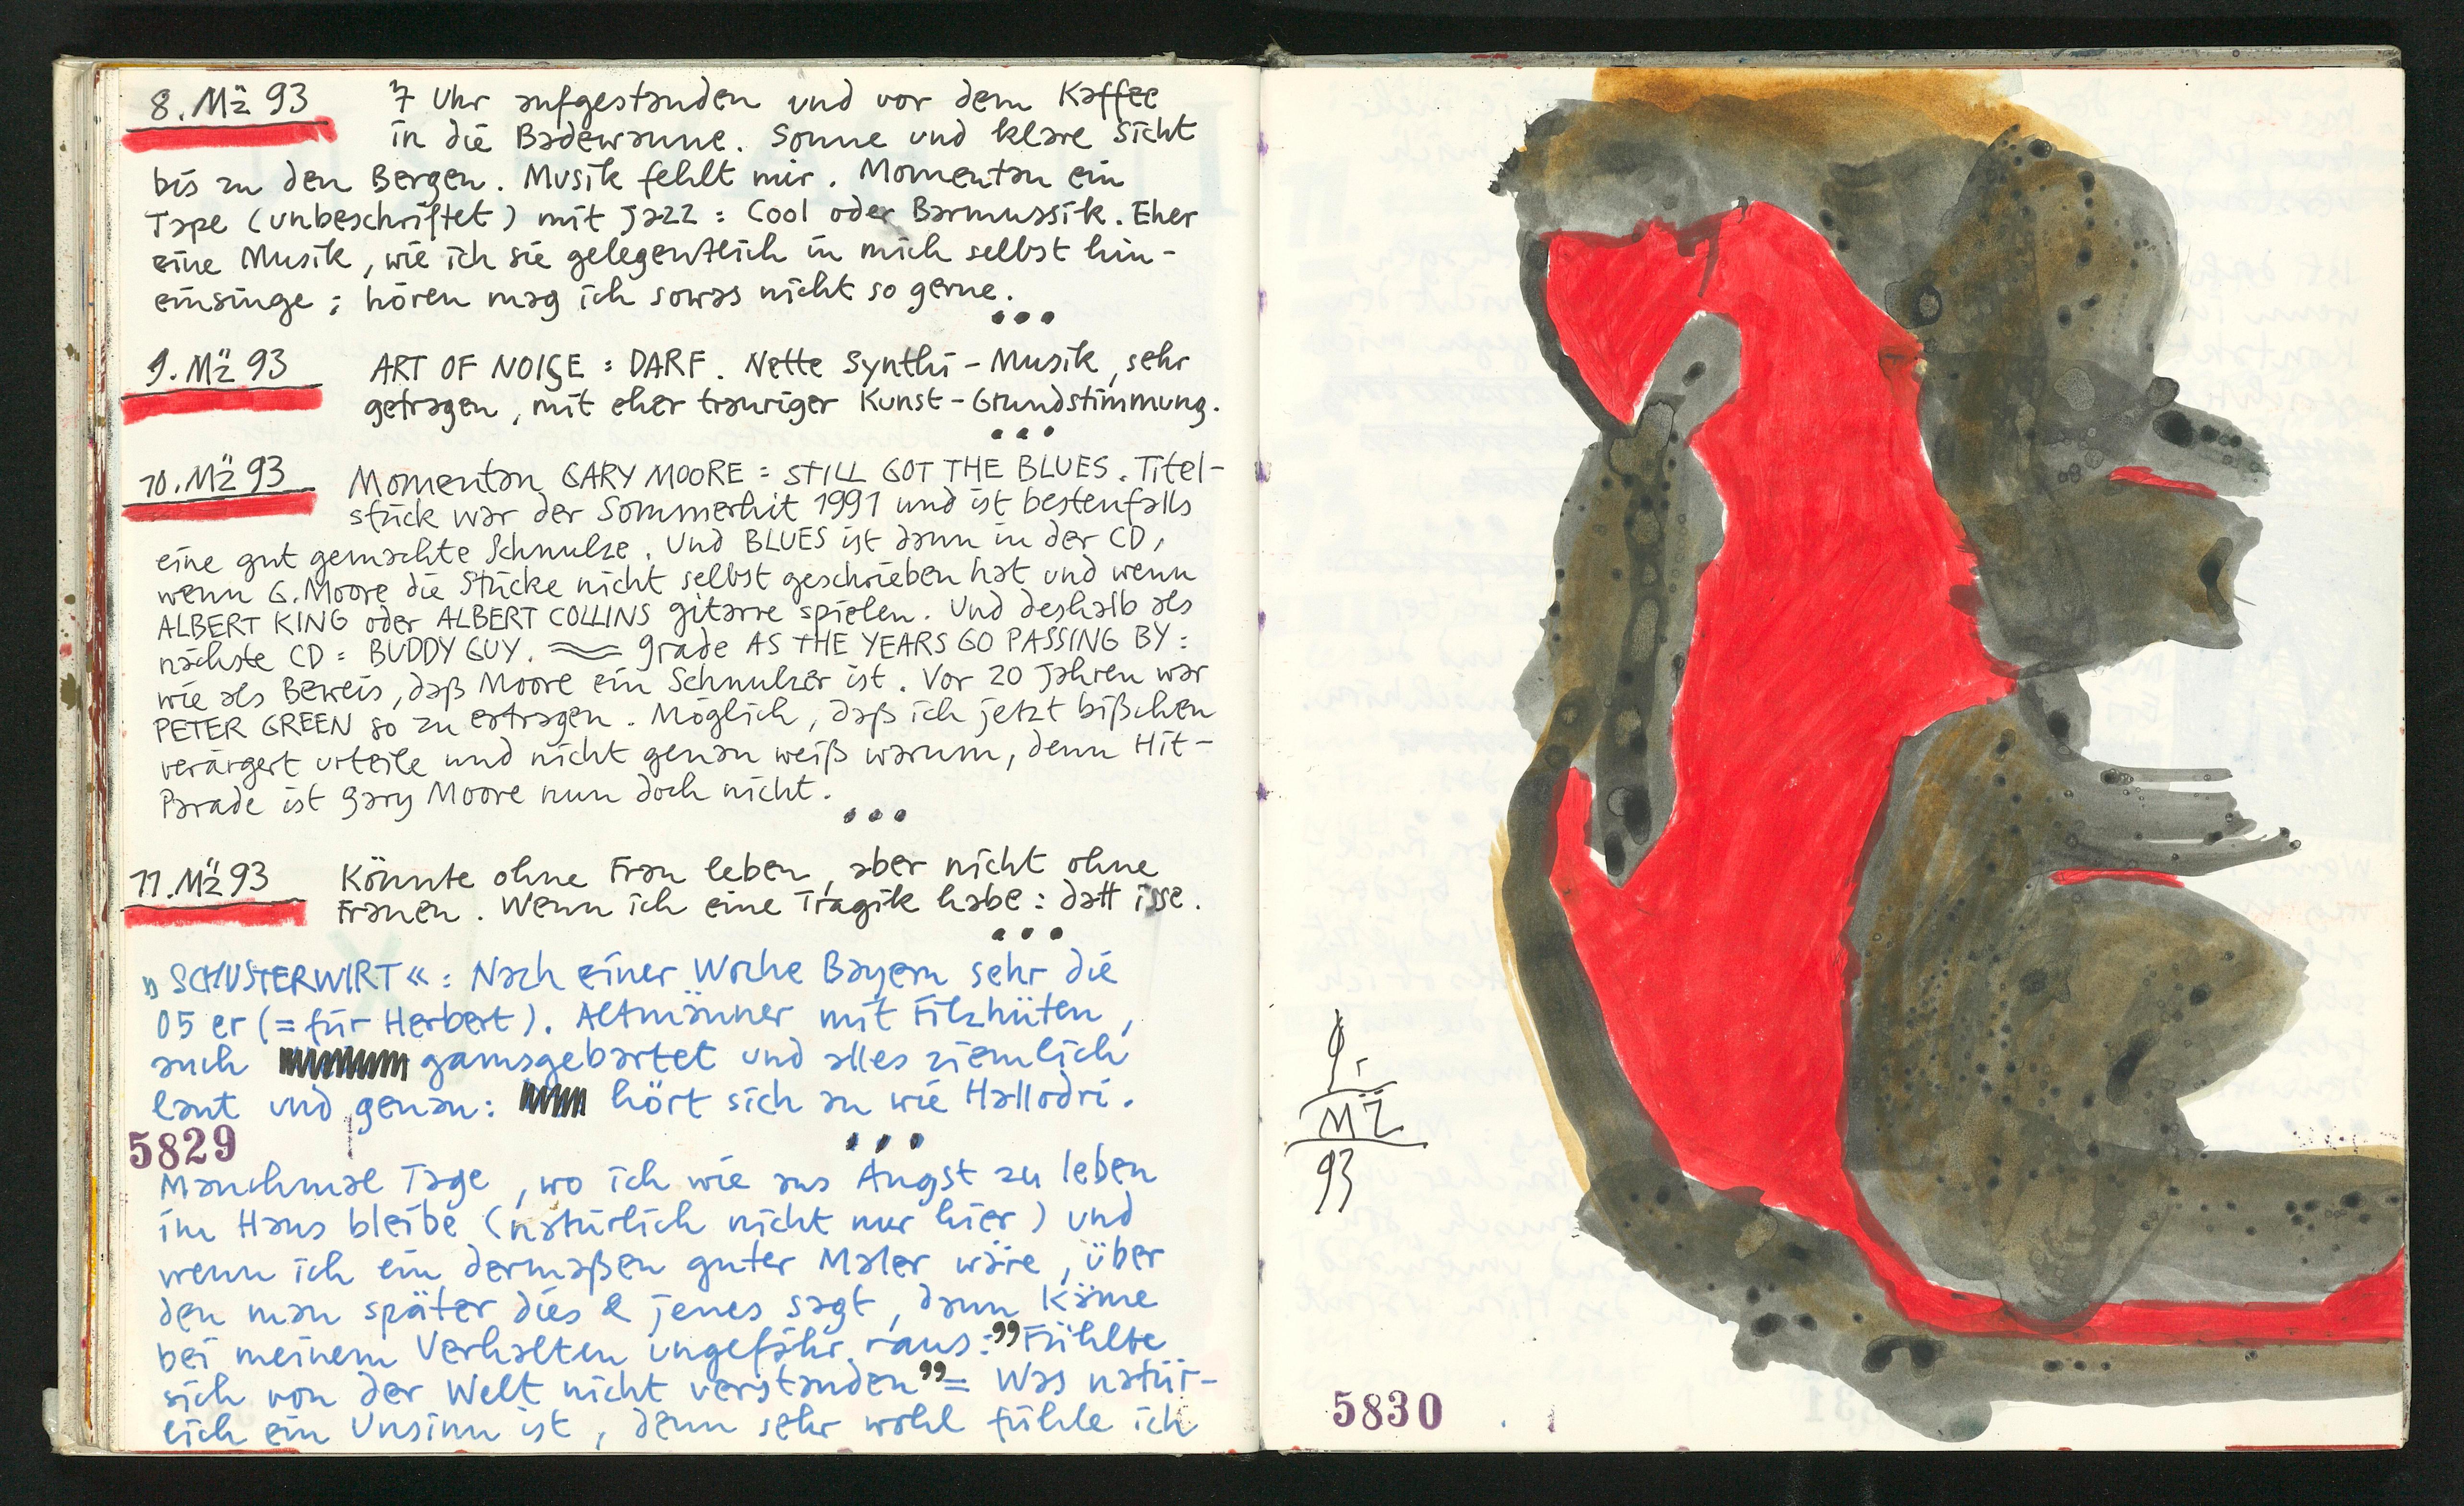 8. Mz 93
7 Uhr aufgestanden und vor dem Kaffee
in die Badewanne. Sonne und klare Sicht
bis zu den Bergen. Musik fehlt mir. Momentan ein
Tape (unbeschriftet) mit Jazz = Cool oder Barmussik. Eher
eine Musik, wie ich sie gelegentlich in mich selbst hin-
einsinge; hören mag ich sowas nicht so gerne.
•••
9. Mz 93
ART OF NOISE = DARF. Nette Synthi-Musik, sehr
getragen, mit eher trauriger Kunst-Grundstimmung.
•••
10. Mz 93
Momentan GARY MOORE = STILL GOT THE BLUES. Titel-
stück war der Sommerhit 1991 und ist bestenfalls
eine gut gemachte Schnulze. Und BLUES ist dann in der CD,
wenn G. Moore die Stücke nicht selbst geschrieben hat und wenn
ALBERT KING oder ALBERT COLLINS gitarre spielen. Und deshalb als
nächste CD = BUDDY GUY. grade AS THE YEARS GO PASSING BY:
wie als Beweis, daß Moore ein Schnulzer ist. Vor 20 Jahren war
PETER GREEN so zu ertragen. Möglich, daß ich jetzt bißchen
verärgert urteile und nicht genau weiß warum, denn Hit-
Parade ist Gary Moore nun doch nicht.
•••
11. Mz 93
Könnte ohne Frau leben, aber nicht ohne
Frauen. Wenn ich eine Tragik habe: datt isse.
•••
»SCHUSTERWIRT«: Nach einer Woche Bayern sehr die
05 er (= für Herbert). Altmänner mit Filzhüten,
auch gamsgebartet und alles ziemlich
laut und genau: hört sich an wie Hallodri.
•••
5829
Manchmal Tage, wo ich wie aus Angst zu leben
im Haus bleibe (natürlich nicht nur hier) und
wenn ich ein dermaßen guter Maler wäre, über
den man später dies & jenes sagt, dann käme
bei meinem Verhalten ungefähr raus: "Fühlte
sich von der Welt nicht verstanden" = Was natür-
lich ein Unsinn ist, denn sehr wohl fühle ich
9.
MZ
93
5830